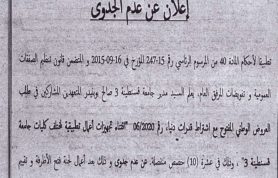 إعلان عن عدم الجدوى
تطبيقا لأحكام المادة 40 من المرسوم الرئاسي رقم 15-247 المؤرخ في 16-09-2015 و المتضمن قانون تنظيم الصفقات
العمومية و تفويضات المرفق العام، يعلم السيد مدير جامعة قسنطينة 3 صالح بوبنيدر المتعهدين المشاركين في طلب
العروض الوطني المفتوح مع اشتراط قدرات دنيا، رقم 06/2020 "اقتناء تجهيزات أعمال تطبيقية لمختلف كليات جامعة
قسنطينة 3"، وذلك في عشرة (10) حصص منفصلة، عن عدم جدوى و ذلك بعد أعمال لجنة فتح الأظرفة و تقييم